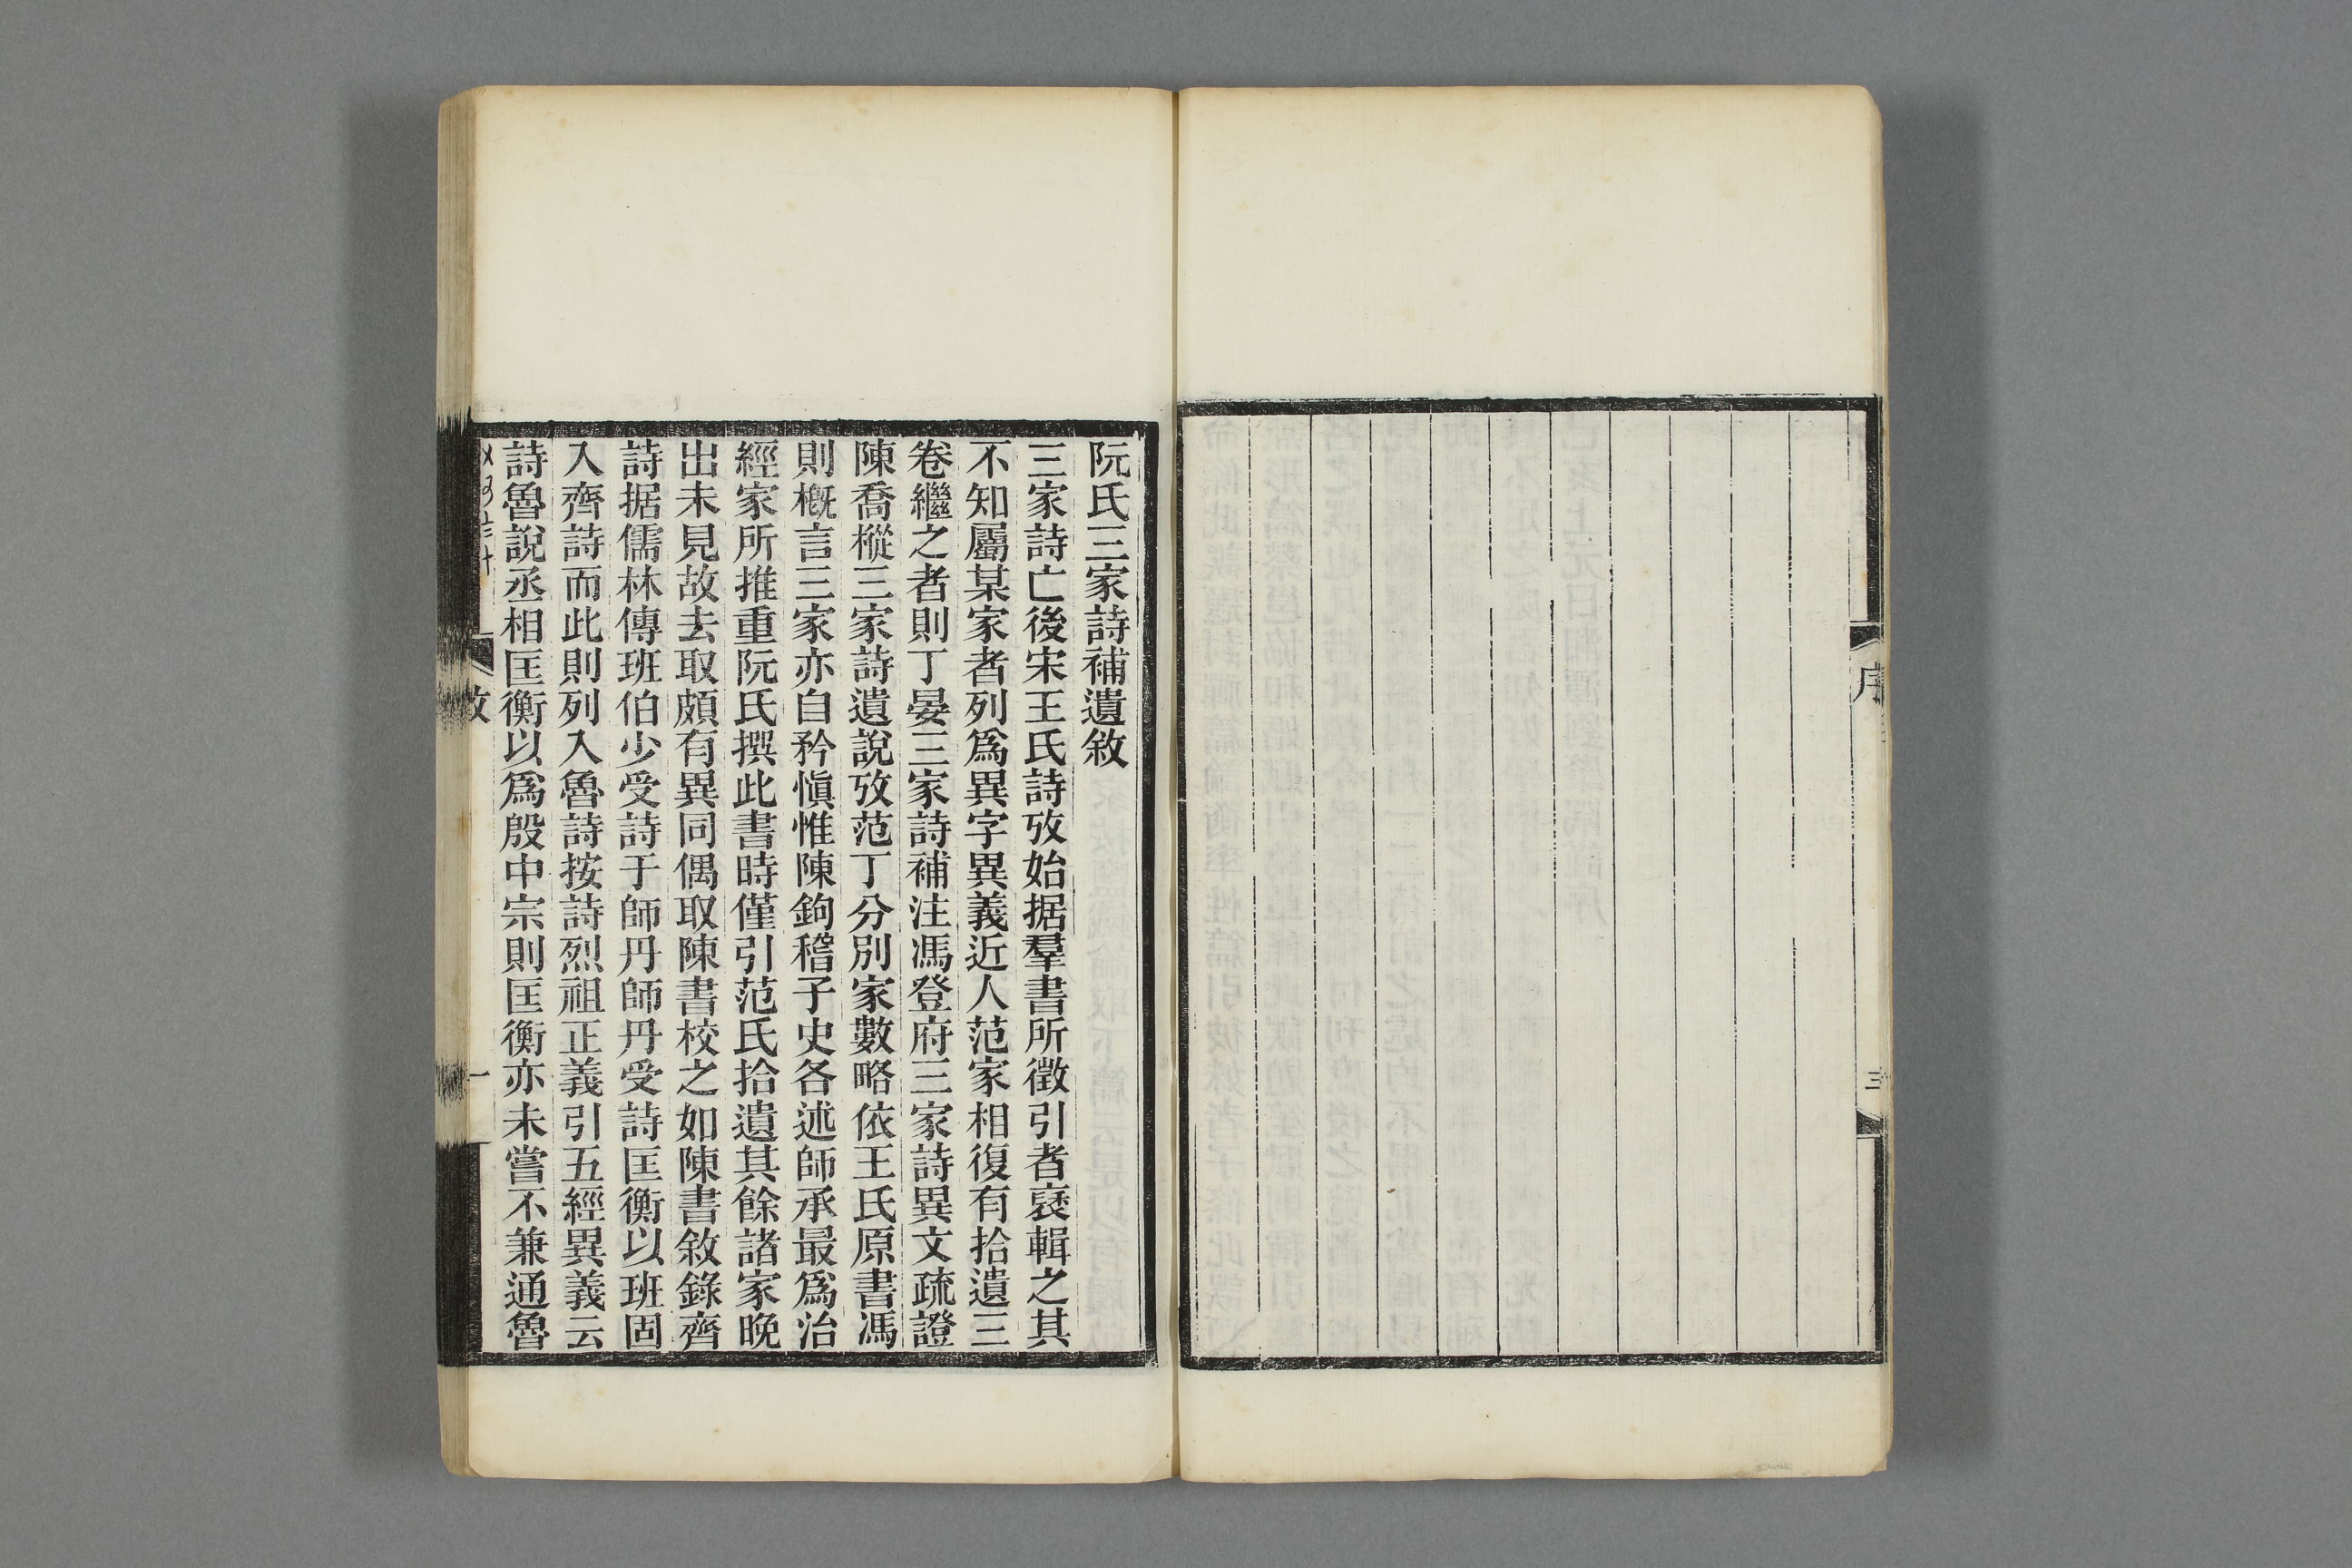 序
三
阮氏三家詩補遺敘
三家詩亡後宋王氏詩攷始据羣書所徵引者裒輯之其
不知屬某家者列爲異字異義近人范家相復有拾遺三
卷繼之者則丁晏三家詩補注馮登府三家詩異文疏證
陳喬樅三家詩遺說攷范丁分別家數略依王氏原書馮
則槪言三家亦自矜愼惟陳鉤稽子史各述師承最爲治
經家所推重阮氏撰此書時僅引范氏拾遺其餘諸家晚
出未見故去取頗有異同偶取陳書校之如陳書敘錄齊
詩据儒林傳班伯少受詩于師丹師丹受詩匡衡以班固
入齊詩而此則列入魯詩按詩烈祖正義引五經異義云
詩魯說丞相匡衡以爲殷中宗則匡衡亦未嘗不兼通魯
敘
一